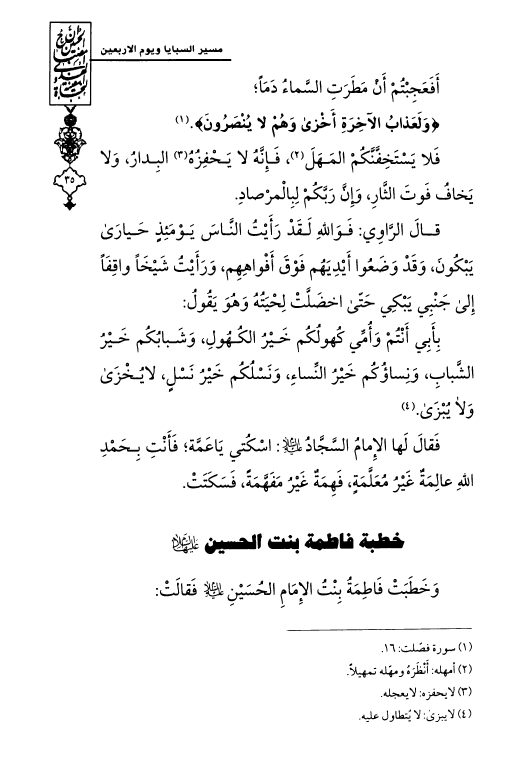 مسير السبايا ويوم الاربعين
٣٥
أَفَعَجِبْتُمْ أَنْ مَطَرَتِ السَّماءُ دَمَاً؛
﴿وَلَعَذابُ الآخِرَةِ أَخْزىٰ وَهُمْ لا يُنْصَرُونَ﴾. (١)
فَلا يَسْتَخِفَّنَّكُمْ المَهَلَ(٢)، فَإِنَّهُ لا يَحْفِزُهُ(٣) البِدارُ، وَلا
يَخافُ فَوتَ الثَّارِ، وَإِنَّ رَبَّكُمْ لِبِالْمرْصادِ.
قالَ الرَّاوِي: فَوَاللهِ لَقَدْ رَأَيْتُ النَّاسَ يَوْمَئِذٍ حَيارىٰ
يَبْكُونَ، وَقَدْ وَضَعُوا أَيْدِيَهُم فَوْقَ أَفْواهِهِم، وَرَأَيْتُ شَيْخَاً واقِفَاً
إِلىٰ جَنْبِي يَبْكِي حَتّىٰ اخضَلَّتْ لِحْيَتُهُ وَهُوَ يَقُولُ:
بِأَبِي أَنْتُمْ وَأُمِّي كُهولُكُم خَيْرُ الكُهُولِ، وَشَبابُكُم خَيْرُ
الشَّبابِ، وَنِساؤُكُم خَيْرُ النِّساءِ، وَنَسْلُكُم خَيْرُ نَسْلٍ، لايُخْزَىٰ
وَلاٰ يُبْزَىٰ. (٤)
فَقالَ لَها الإِمامُ السَّجَّادُ عليه السلام: اسْكُتي يَاعَمَّة؛ فَأَنْتِ بِحَمْدِ
اللهِ عالِمَةٌ غَيْرُ مُعَلَّمَةٍ، فَهِمَةٌ غَيْرُ مَفَهَّمَةً، فَسَكَتَتْ.
خطبة فاطمة بنت الحسين عليهما السلام
وَخَطَبَتْ فَاطِمَةُ بِنْتُ الإِمَامِ الحُسَيْنِ عليه السلام فَقالَتْ:
(١) سورة فصّلت: ١٦.
(٢) أمهله: أَنْظَرَهُ ومهّله تمهيلاً.
(٣) لايحفزه: لايعجله.
(٤) لايبزىٰ: لا يُتطاول عليه.